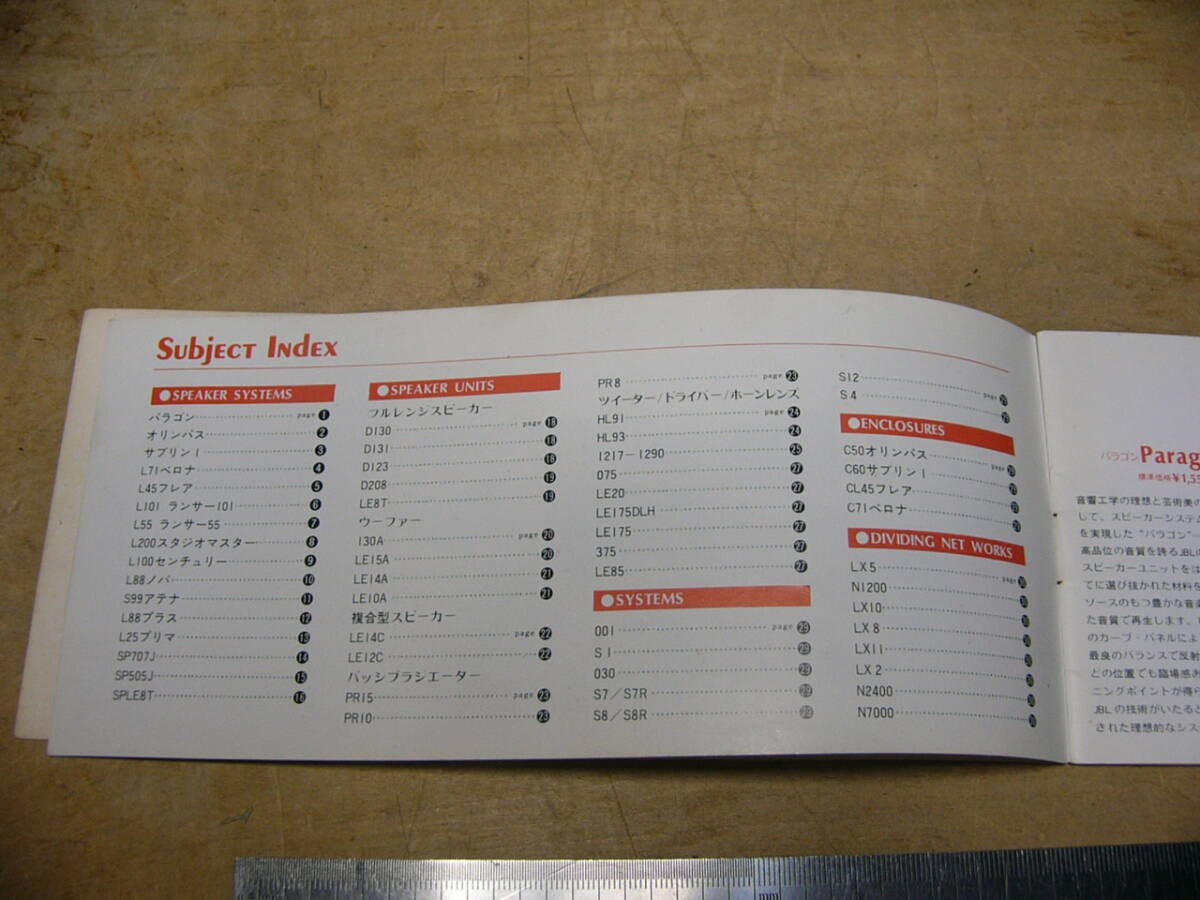 Subject Index
●SPEAKER SYSTEMS
パラゴン page 1
オリンパス 2
サブリン I 3
L71ベロナ 4
L45フレア 5
L101 ランサー101 6
L55 ランサー55 7
L200スタジオマスター 8
L100センチュリー 9
L88ノバ 10
S99アテナ 11
L88プラス 12
L25プリマ 13
SP707J 14
SP505J 15
SPLE8T 16
●SPEAKER UNITS
フルレンジスピーカー
D130 page 18
D131 18
D123 18
D208 19
LE8T 19
ウーファー
130A page 20
LE15A 20
LE14A 21
LE10A 21
複合型スピーカー
LE14C page 22
LE12C 22
パッシブラジエーター
PR15 page 23
PR10 23
PR8 page 23
ツイーター/ドライバー/ホーンレンズ
HL91 page 24
HL93 24
1217-1290 25
075 27
LE20 27
LE175DLH 27
LE175 27
375 27
LE85 27
●SYSTEMS
001 page 29
S1 29
030 29
S7/S7R 29
S8/S8R 29
S12 page 29
S4 29
●ENCLOSURES
C50オリンパス page 29
C60サブリン I 29
CL45フレア 29
C71ベロナ 29
●DIVIDING NET WORKS
LX5 page 30
N1200 30
LX10 30
LX8 30
LX11 30
LX2 30
N2400 30
N7000 30
パラゴン Parag
標準価格¥1,55
音響工学の理想と芸術美の
して、スピーカーシステム
を実現した"パラゴン"—
高品位の音質を誇るJBLの
スピーカーユニットをは
てに選び抜かれた材料を
ソースのもつ豊かな音楽
た音質で再生します。
のカーブ・パネルによ
最良のバランスで反射
どの位置でも臨場感あ
ニングポイントが得ら
JBLの技術がいたると
された理想的なシス
mm